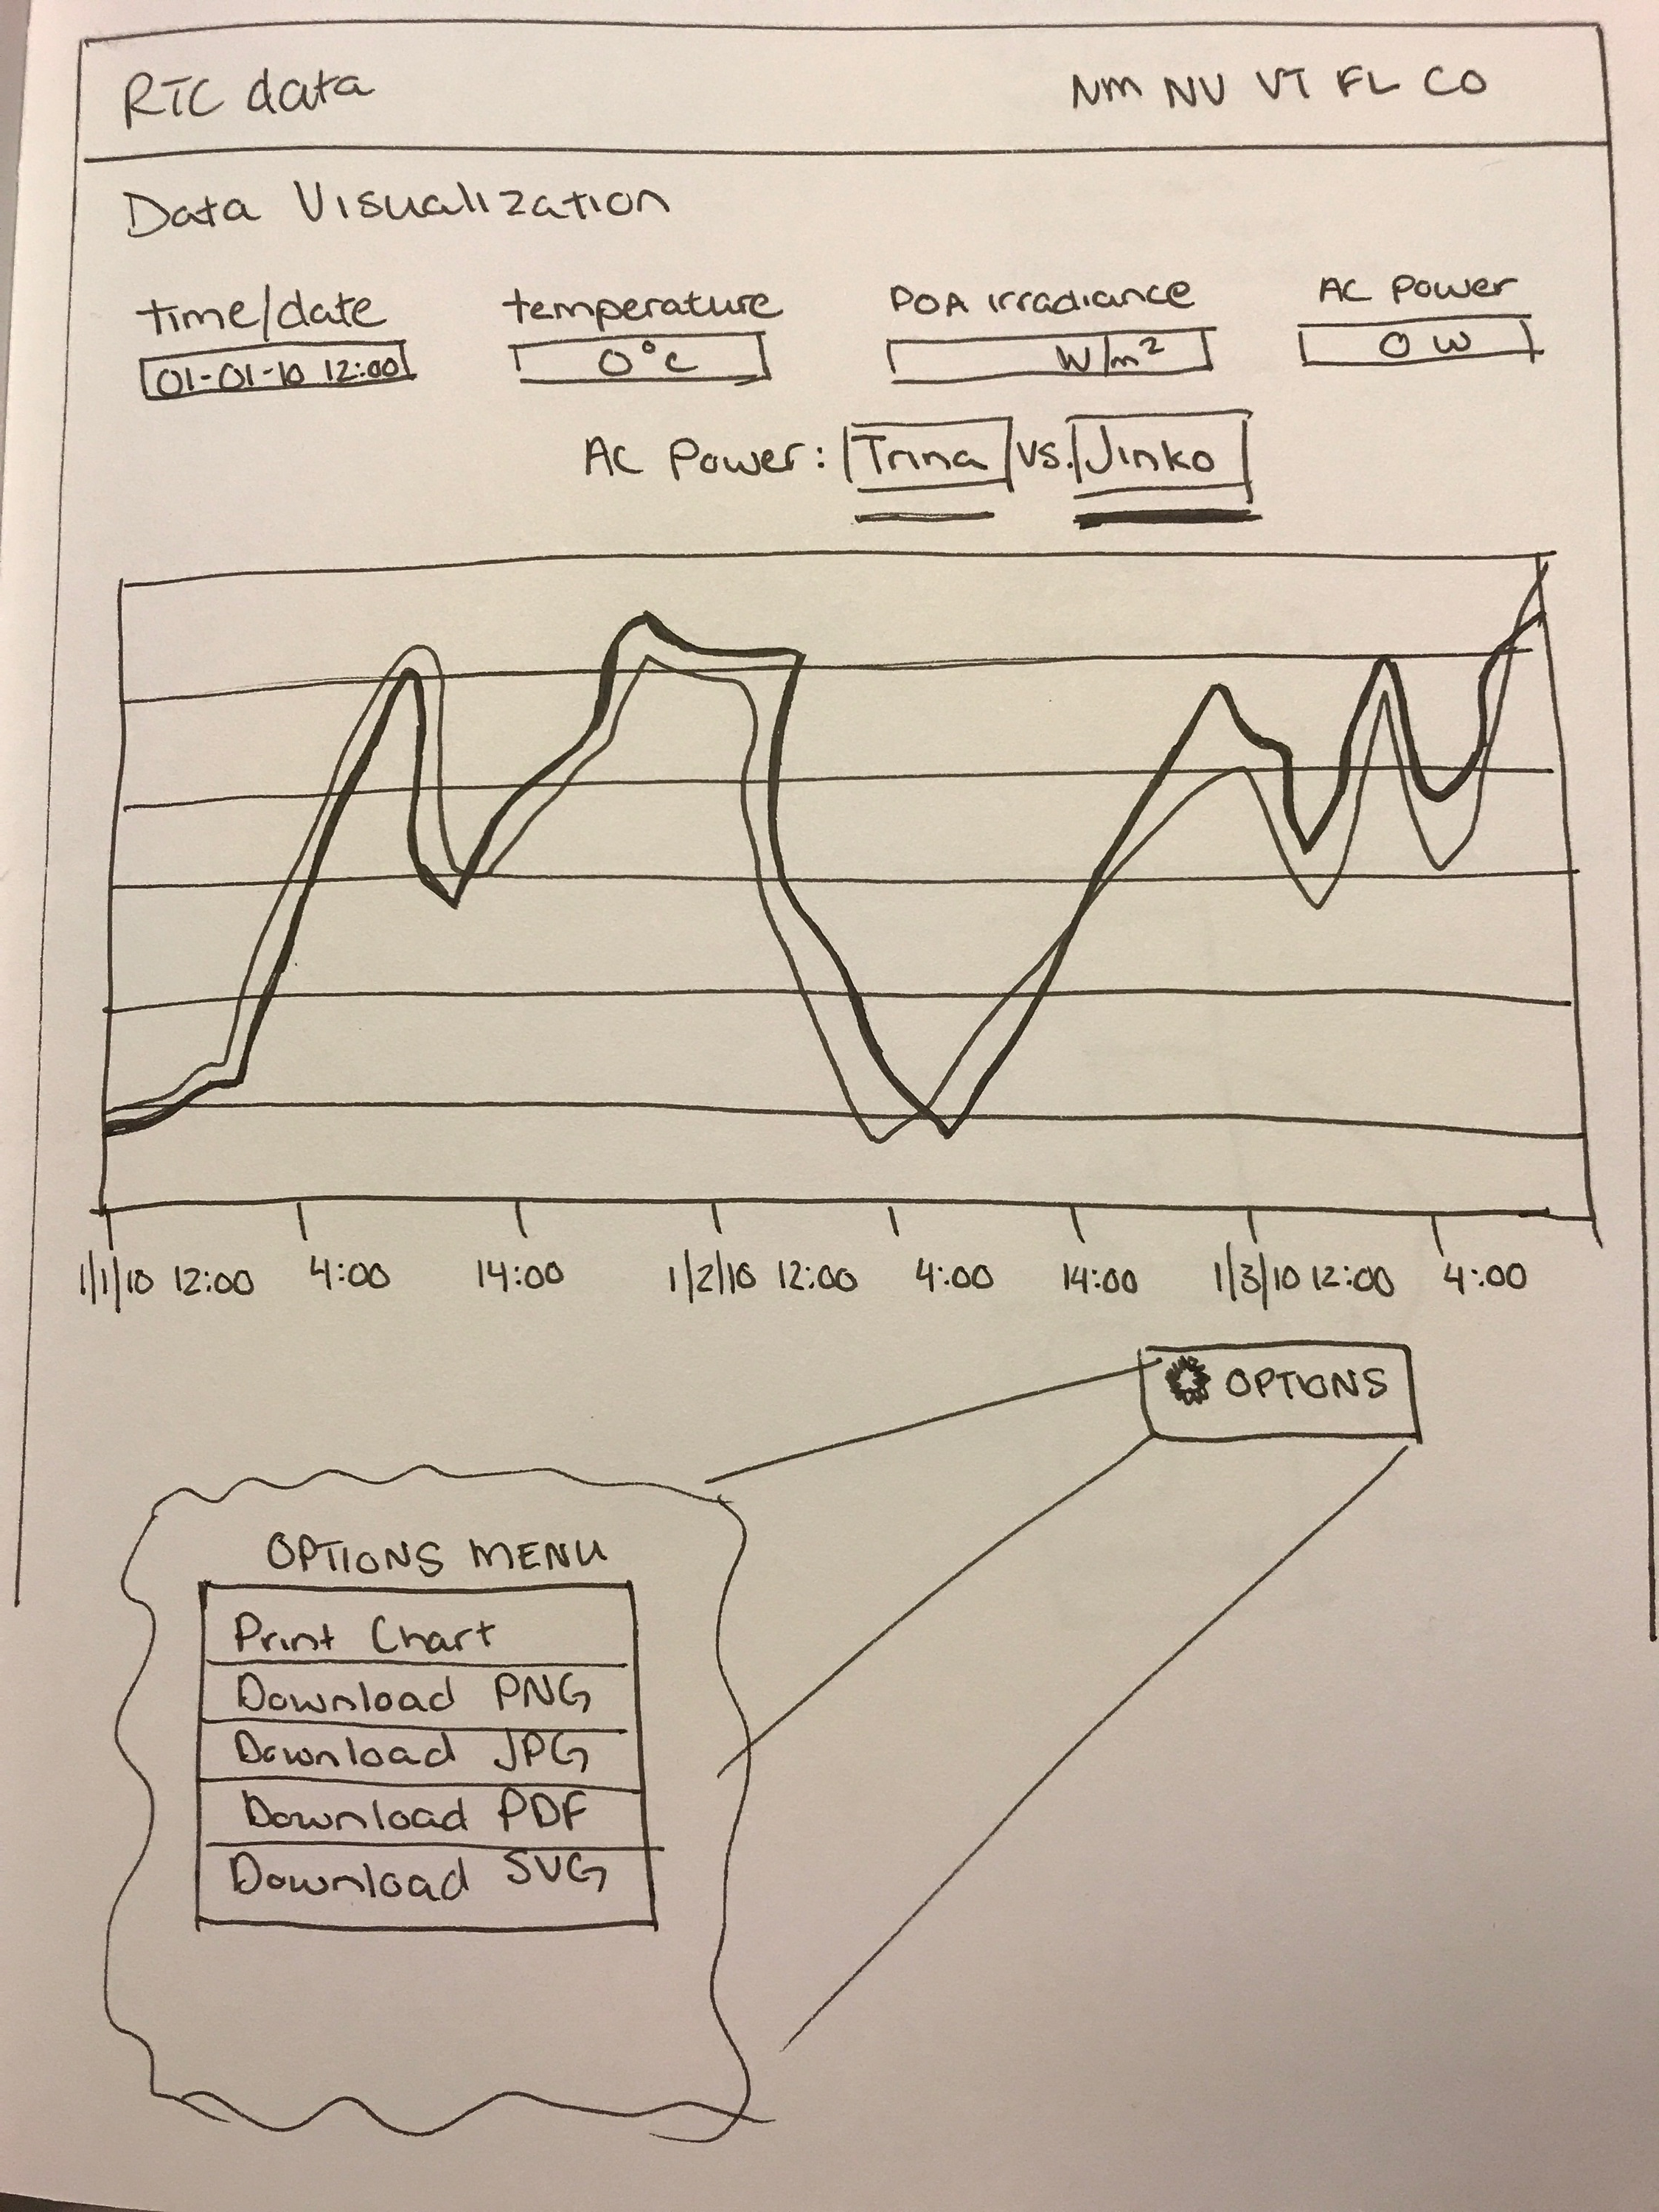 RTC data NM NV VT FL CO
Data Visualization
time/date temperature POA irradiance AC Power
01-01-10 12:00 0°C W/m² 0 W
AC Power: Trina vs. Jinko
1/1/10 12:00 4:00 14:00 1/2/10 12:00 4:00 14:00 1/3/10 12:00 4:00
OPTIONS
OPTIONS MENU
Print Chart
Download PNG
Download JPG
Download PDF
Download SVG